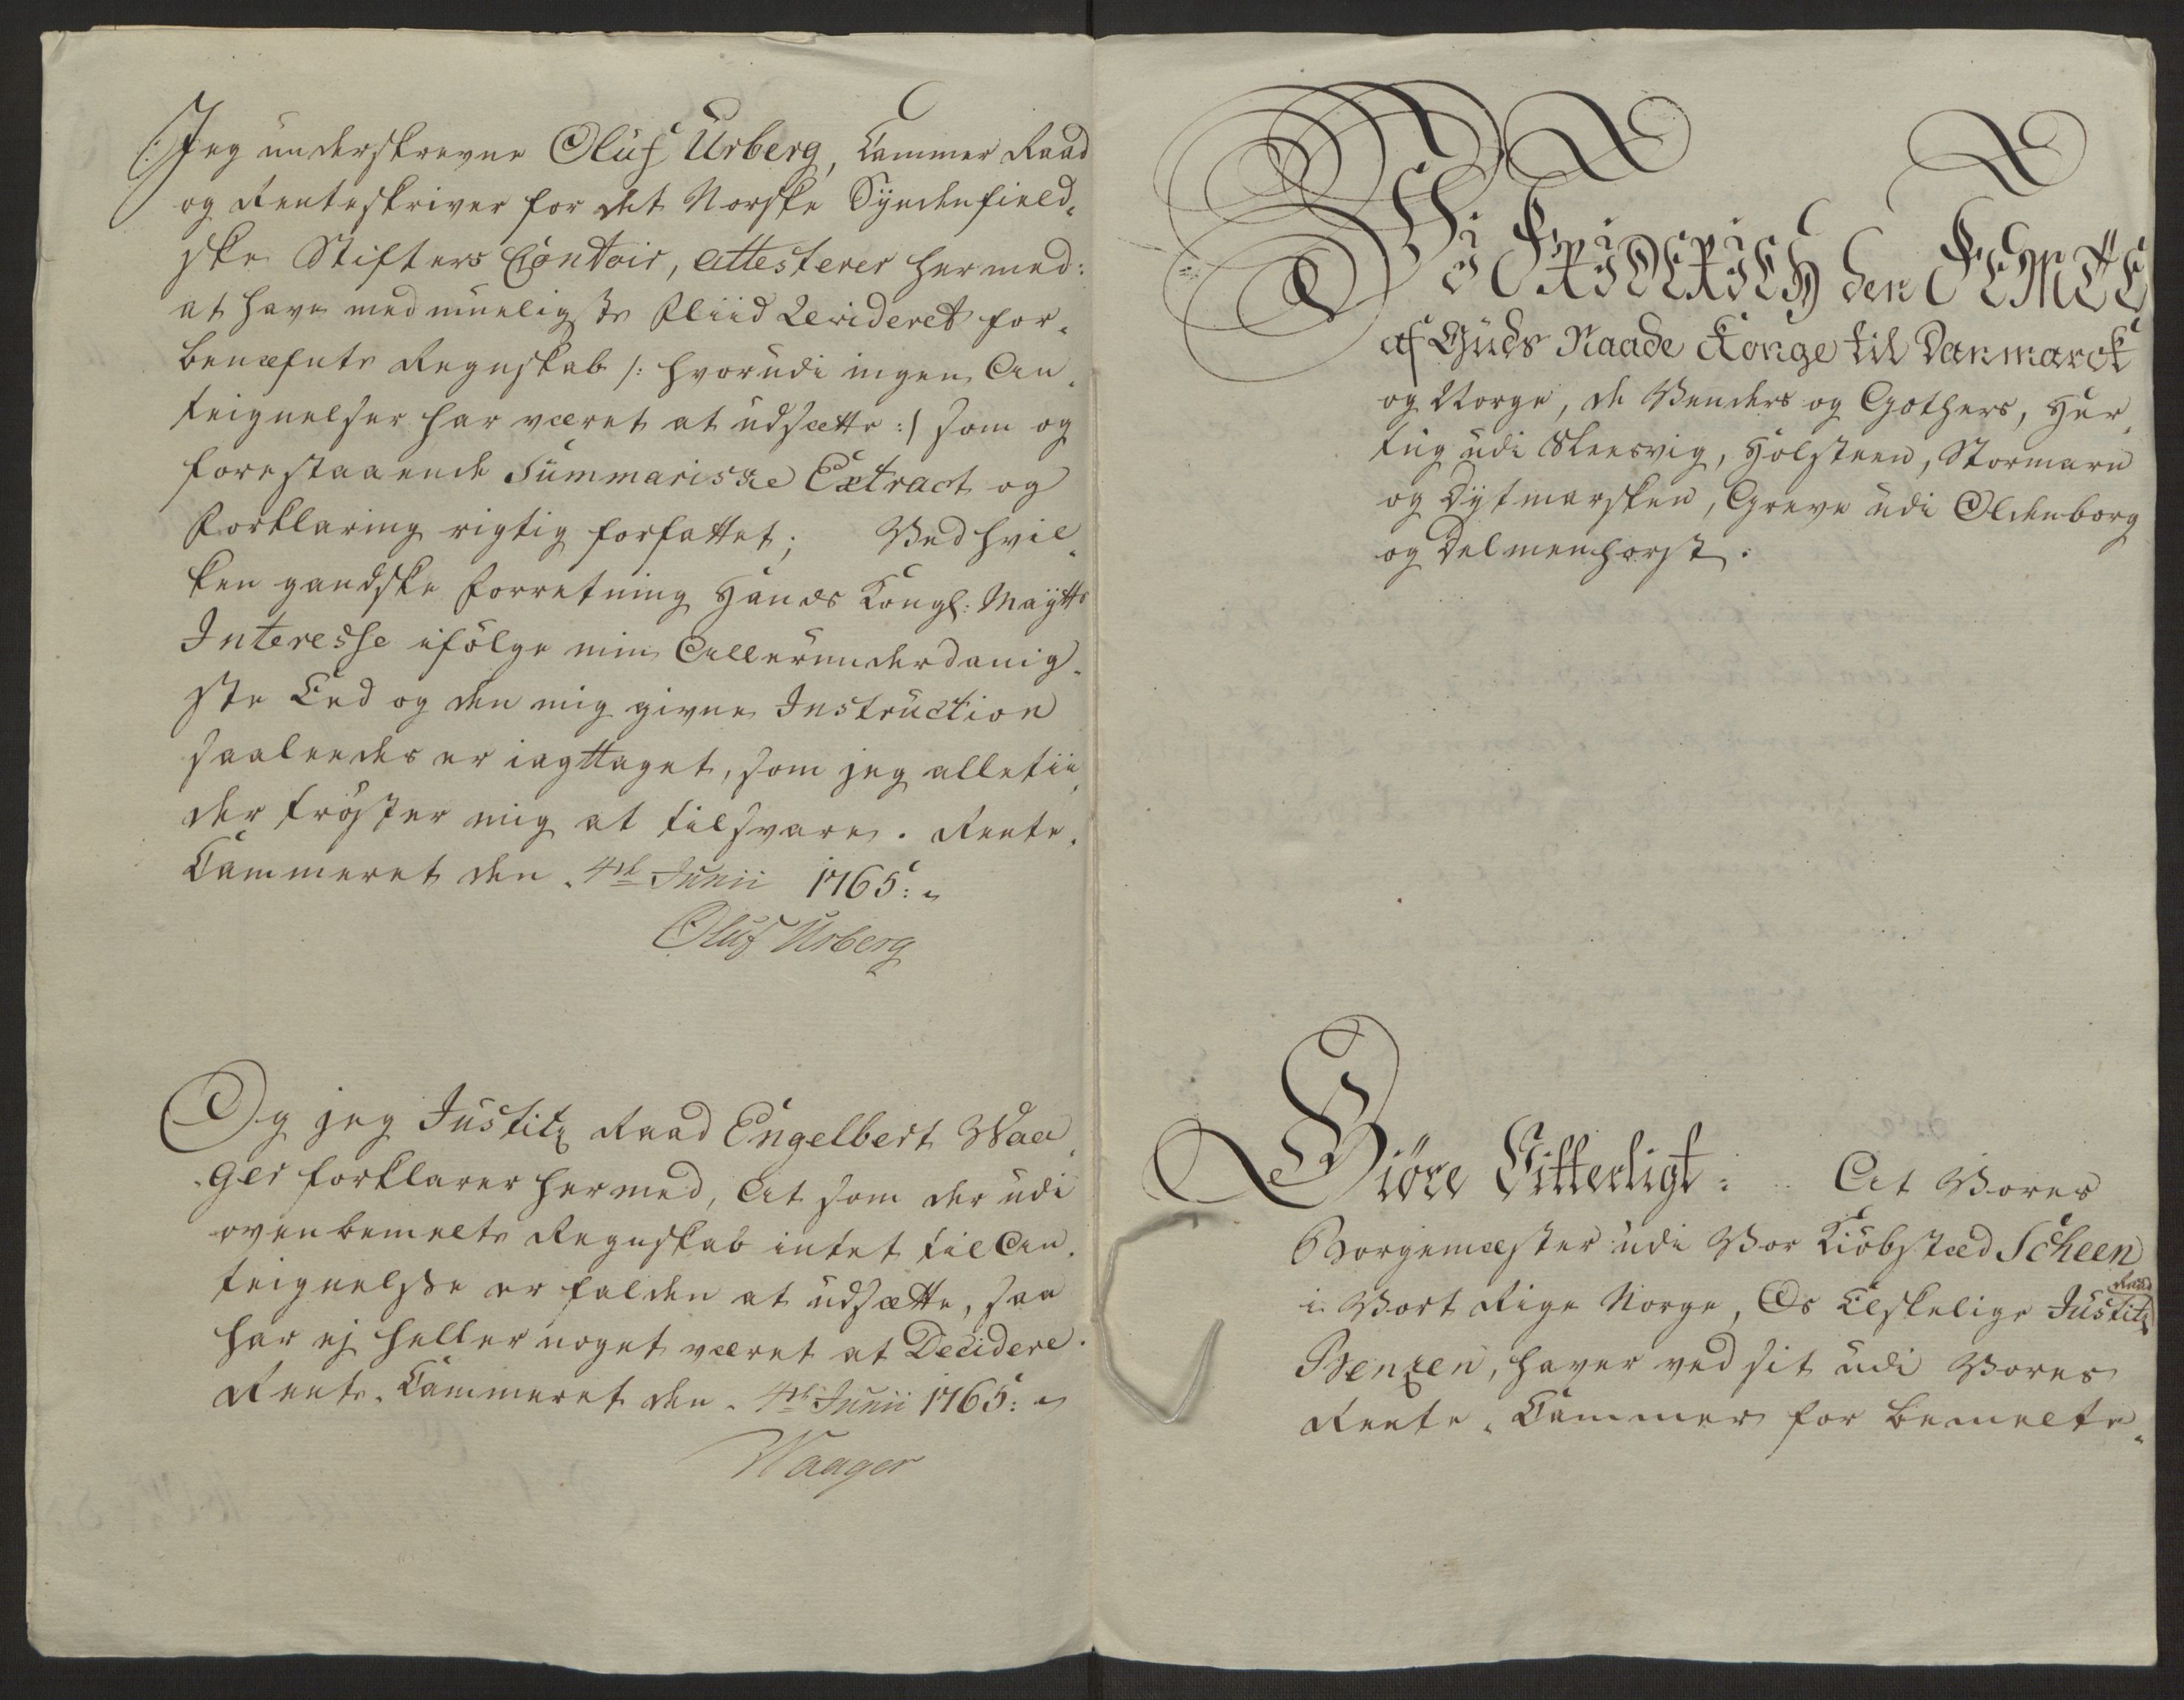 Jeg underskrevne Oluf Urberg, Cammer Raad
og Renteskriver for det Norske Syndenfield-
ske Stifters Contoir, attesterer hermed:
at have med mueligste Fliid Revideret for-
benæfnte Regnskab /: hvorudi ingen An-
teignelser har været at udsætte :/ som og
forestaaende Summariske Extract og
Forklaring rigtig forfattet; Ved hvil-
ken gandske Forretning Hands Kongl: Maÿtts
Interesse ifölge min Allerunderdanig-
ste Eed og den mig givne Instruction
saaleedes er iagttaget, som jeg alletii-
der tröster mig at tilsvare. Rente-
Cammeret den 4de Junii 1765:
Oluf Urberg
Og jeg Justitz Raad Engelbert Waa-
ger forklarer hermed, At som der udi
ovenbemelte Regnskab intet til An-
teignelse er falden at udsætte, saa
har ej heller noget været at Decidere.
Rente-Cammeret den 4de Junii 1765:
Waager
Vi FRIDERICH den FEMTE
af Guds Naade Konge til Danmarck
og Norge, de Venders og Gothers, Her-
tug udi Sleesvig, Holsteen, Stormarn
og Dytmarsken, Greve udi Oldenborg
og Delmenhorst.
Giöre Vitterligt: At Vores
Borgemæster udi Vor Kiöbstæd Scheen
i Vort Rige Norge, Os Elskelige Justitz Raad
Benzen, haver ved sit udi Vores
Rente-Cammer for bemelte